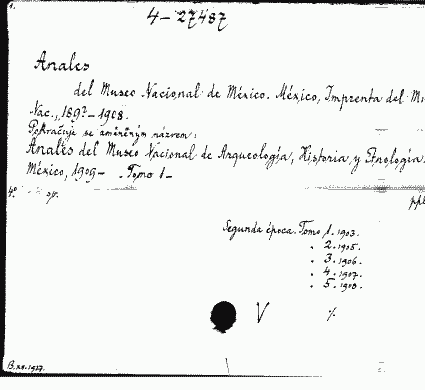 4-27487
Anales
del Museo Nacional de México. México, Imprenta del M
Nac., 189?-1908.
Pokračuje se změněným názvem:
Anales del Museo Nacional de Arqueología, Historia, y Etnología.
México, 1909- . Tomo 1-
4°
Segunda época. Tomo 1. 1903.
. 2. 1905.
. 3. 1906.
. 4. 1907.
. 5. 1908.
V ./.